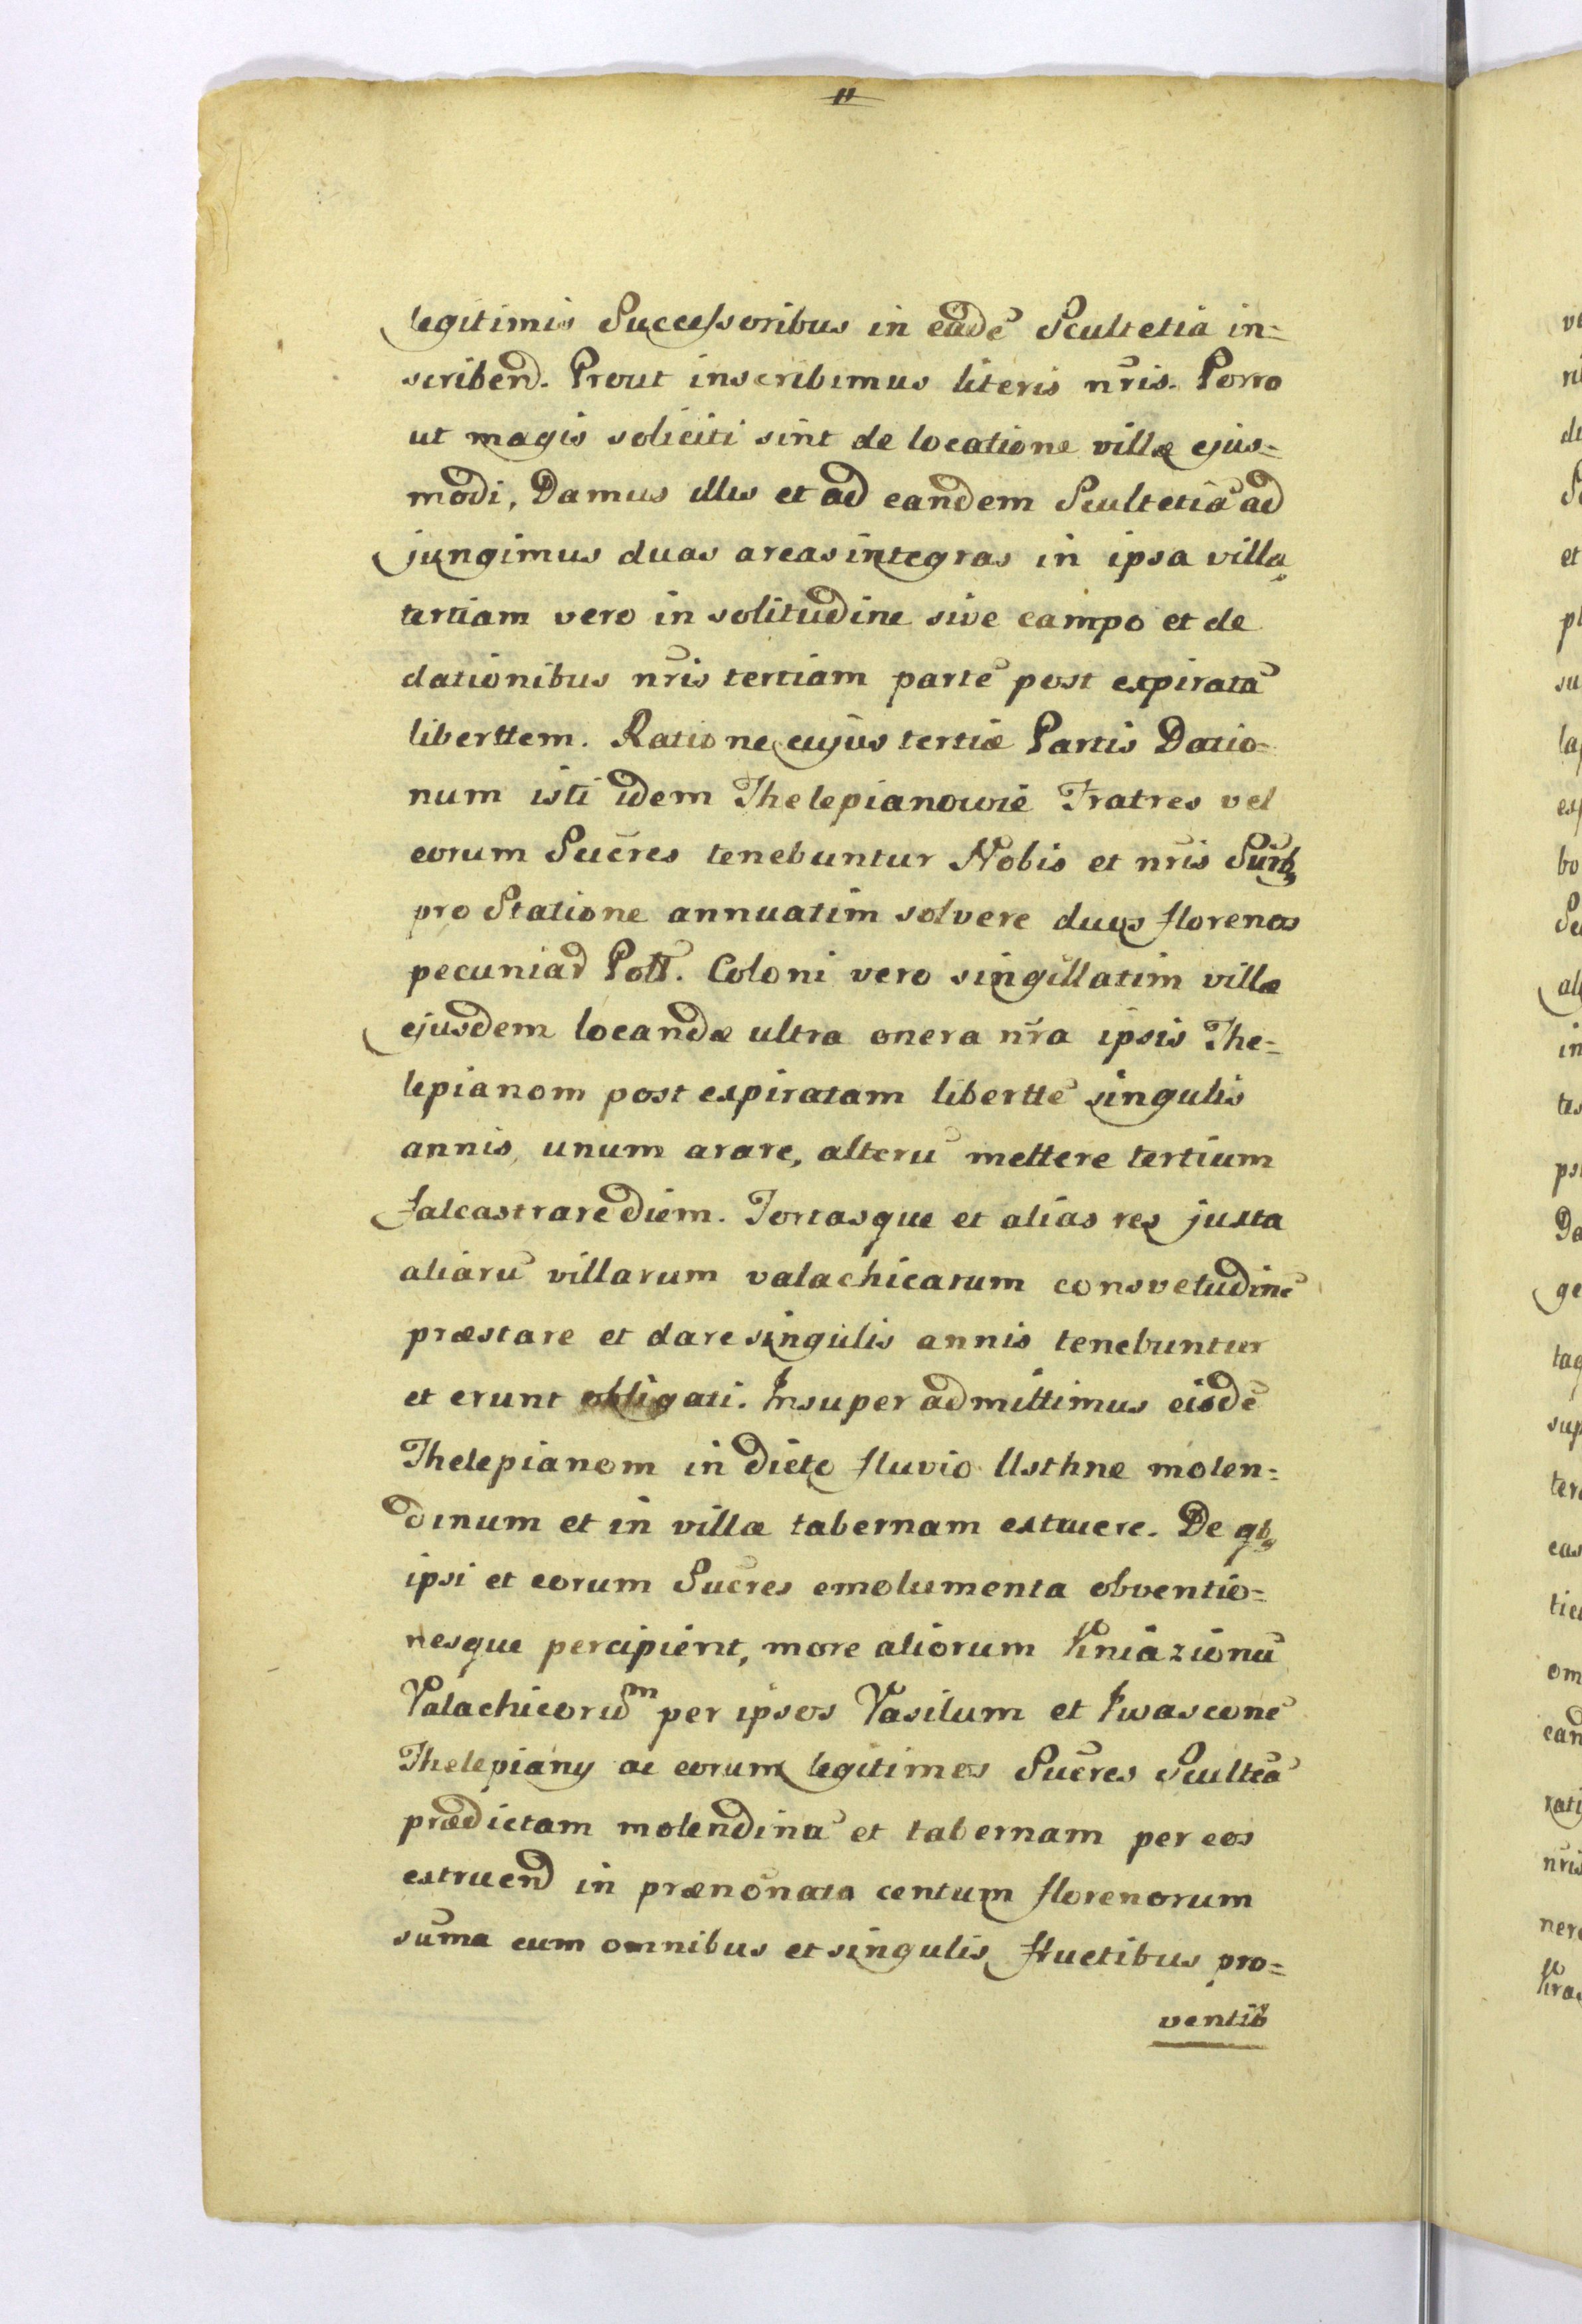 11
legitimis Successoribus in eadẽ Scultetia in=
scribend. Prout inscribimus literis nr̃is. Porro
ut magis soliciti sint de locatione villæ ejus=
modi, Damus illis et ad eandem Scultetiã ad
jungimus duas areas integras in ipsa villa,
tertiam vero in solitudine sive campo et de
dationibus nr̃is tertiam partẽ post expiratã
liberttem. Ratione cujus tertiæ Partis Datio=
num isti idem Thelepianowie Fratres vel
eorum Succr̃es tenebuntur Nobis et nr̃is
pro Statione annuatim solvere duos florenos
pecuniar Poll. Coloni vero singillatim villæ
ejusdem locandæ ultra onera nr̃a ipsis The=
lepianom post expiratam liberttẽ singulis
annis, unum arare, alterũ mettere tertium
falcastrare diem. Tortasque et alias res juxta
aliarũ villarum valachicarum consvetudinẽ
præstare et dare singulis annis tenebuntur
et erunt obligati. Insuper admittimus eisdẽ
Thelepianom in dicto fluvio Usthne molen=
dinum et in villa tabernam extruere. De qb,
ipsi et eorum Sucr̃es emolumenta obventio=
nesque percipient, more aliorum Kniazionũ
Valachicorũm per ipsos Vasilum et Iwasconẽ
Thelepiany ac eorum legitimos Sucr̃es Sculteã
prædictam molendinũ et tabernam per eos
extruend in prænõnata centum florenorum
sũma cum omnibus et singulis fructibus pro=
ventib